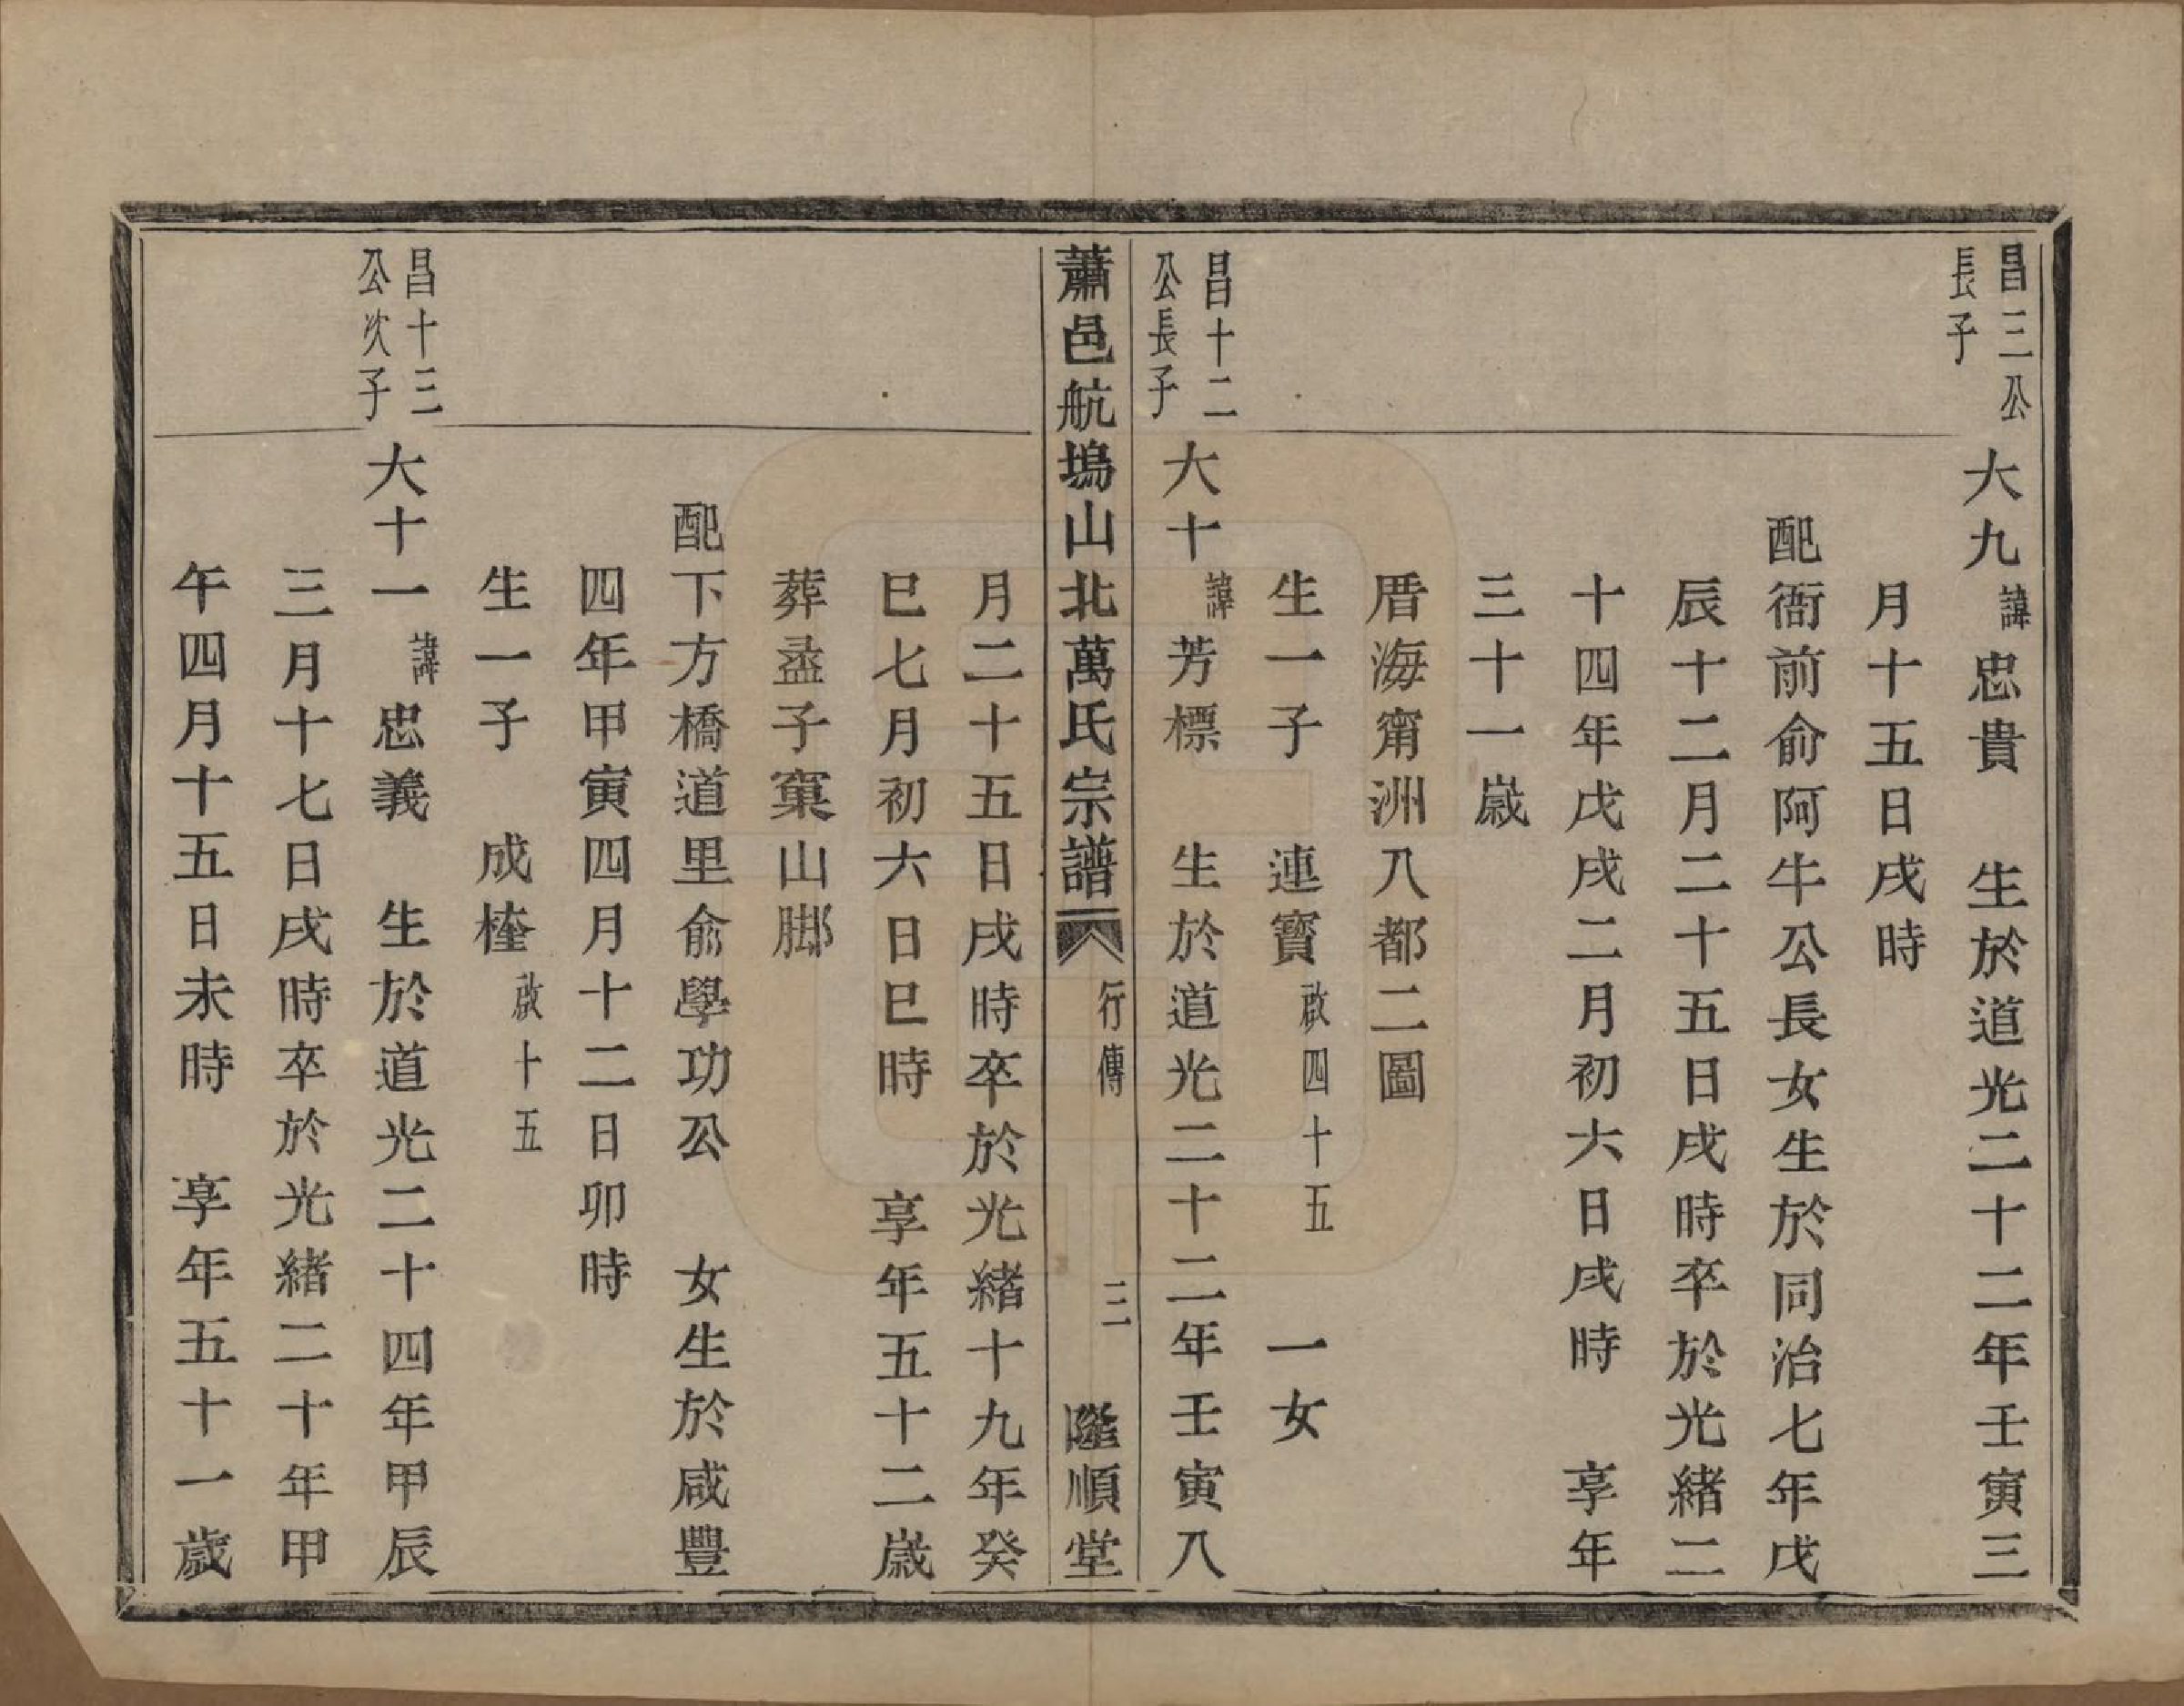 昌三公
長子
大九諱忠貴　生於道光二十二年壬寅三
月十五日戌時
配衙前俞阿牛公長女生於同治七年戊
辰十二月二十五日戌時卒於光緒二
十四年戊戌二月初六日戌時　享年
三十一歲
厝海甯洲八都二圖
生一子　連寶啟四十五　一女
昌十二
公長子
大十諱芳標　生於道光二十二年壬寅八
蕭邑航塢山北萬氏宗譜　行傳　三　隆順堂
月二十五日戌時卒於光緒十九年癸
巳七月初六日巳時　享年五十二歲
葬盋子窠山脚
配下方橋道里俞學功公　女生於咸豐
四年甲寅四月十二日卯時
生一子　成㮔啟十五
昌十三
公次子
大十一諱忠義　生於道光二十四年甲辰
三月十七日戌時卒於光緒二十年甲
午四月十五日未時　享年五十一歲